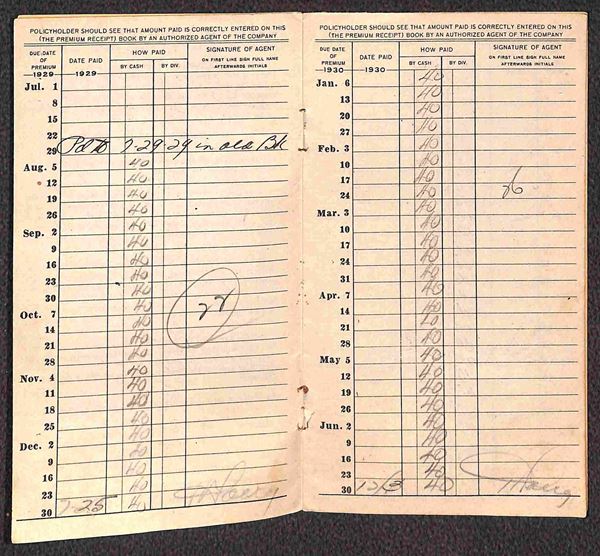 POLICYHOLDER SHOULD SEE THAT AMOUNT PAID IS CORRECTLY ENTERED ON THIS
(THE PREMIUM RECEIPT) BOOK BY AN AUTHORIZED AGENT OF THE COMPANY
DUE-DATE OF PREMIUM
DATE PAID
HOW PAID
BY CASH
BY DIV.
SIGNATURE OF AGENT
ON FIRST LINE SIGN FULL NAME
AFTERWARDS INITIALS
1929 1929
Jul. 1
8
15
22
29 Pd to 7-29-29 in old Bk
Aug. 5 40
12 40
19 40
26 40
Sep. 2 40
9 40
16 40
23 40
30 40
Oct. 7 40
14 40
21 40
28 40
Nov. 4 40
11 40
18 40
25 40
Dec. 2 40
9 40
16 40
23 40
30 40
22
POLICYHOLDER SHOULD SEE THAT AMOUNT PAID IS CORRECTLY ENTERED ON THIS
(THE PREMIUM RECEIPT) BOOK BY AN AUTHORIZED AGENT OF THE COMPANY
DUE-DATE OF PREMIUM
DATE PAID
HOW PAID
BY CASH
BY DIV.
SIGNATURE OF AGENT
ON FIRST LINE SIGN FULL NAME
AFTERWARDS INITIALS
1930 1930
Jan. 6 40
13 40
20 40
27 40
Feb. 3 40
10 40
17 40
24 40 26
Mar. 3 40
10 40
17 40
24 40
31 40
Apr. 7 40
14 40
21 40
28 40
May 5 40
12 40
19 40
26 40
Jun. 2 40
9 40
16 40
23 40
30 40